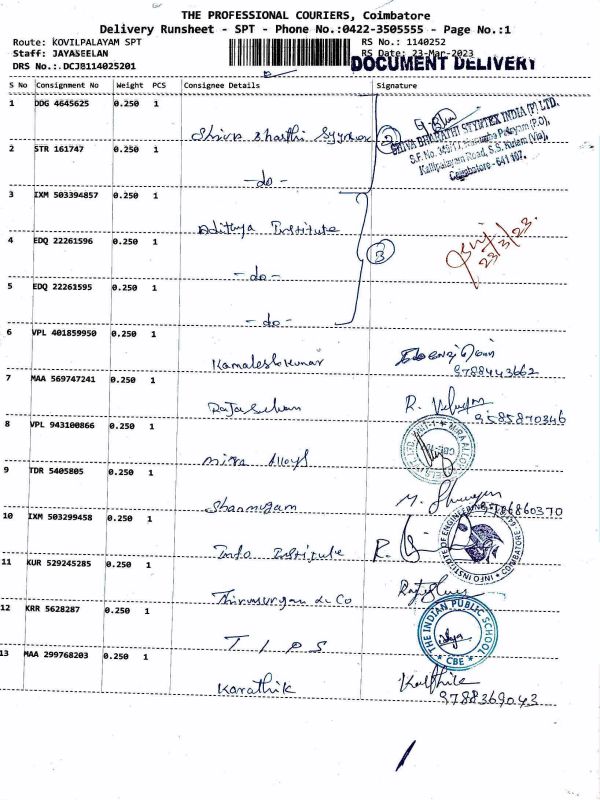 THE PROFESSIONAL COURIERS, Coimbatore
Delivery Runsheet - SPT - Phone No.:0422-3505555 - Page No.:1
Route: KOVILPALAYAM SPT
RS No.: 1140252
Staff: JAYASEELAN
RS Date: 23-Mar-2023
DRS No.:.DCJ8114025201
DOCUMENT DELIVERY
S No Consignment No Weight PCS Consignee Details Signature
1 DDG 4645625 0.250 1
Shiva Bharthi 2
SHIVA BHARATHI SYNTEX INDIA (P) LTD.
Kallipalayam Road, S.S. Kulam (Via),
Coimbatore - 641 107.
2 STR 161747 0.250 1
-do-
3 IXM 503394857 0.250 1
Adithya Institute
23/3/23.
4 EDQ 22261596 0.250 1
-do- 3
5 EDQ 22261595 0.250 1
-do-
6 VPL 401859950 0.250 1
Kamaleshkumar
9788443662
7 MAA 569747241 0.250 1
Rajaselvan
9585870346
8 VPL 943100866 0.250 1
Mira Alloys
9 TDR 5405805 0.250 1
Shanmugam
10 IXM 503299458 0.250 1
Info Institute R.
11 KUR 529245285 0.250 1
Thirumurgan & Co
12 KRR 5628287 0.250 1
T I P S
THE INDIAN PUBLIC SCHOOL
* CBE *
13 MAA 299768203 0.250 1
Karathik
9788369043